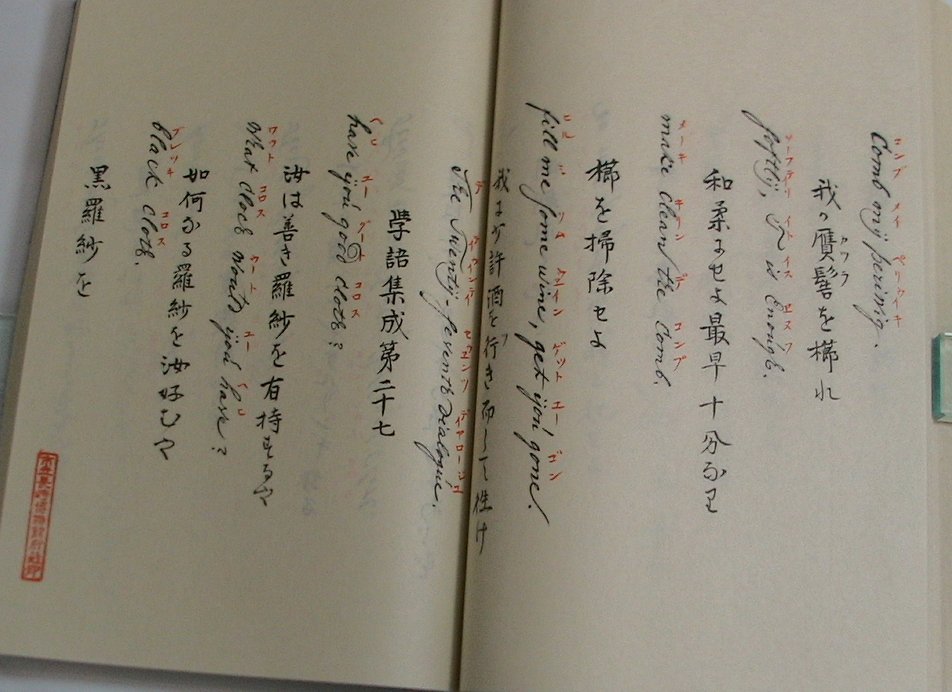 Comb my periwig.
コンブ メイ ペリウィキ
我カ贋髻ヲ櫛れ
カツラ
softly, it is Enough.
ソーフテリ イト イス エヌフ
和柔にせよ最早十分なり
make clean the Comb.
メーキ キリーン デ コンブ
櫛を掃除せよ
fill me some wine, get you gone.
ヒル ミ ソム ワイン ゲット ユー ゴン
我に少許酒を行き而して往け
The Twenty-seventh Dialogue.
デ トウェンティ セウエンツ ディヤロージュエ
学語集成第二十七
have you good cloth?
ヘヒ ユー グート コロス
汝は善き羅紗を有持するや
What cloth would you have?
ワット コロス ウート ユー ヘヒ
如何なる羅紗を汝好むや
black cloth.
ブレッキ コロス
黒羅紗を